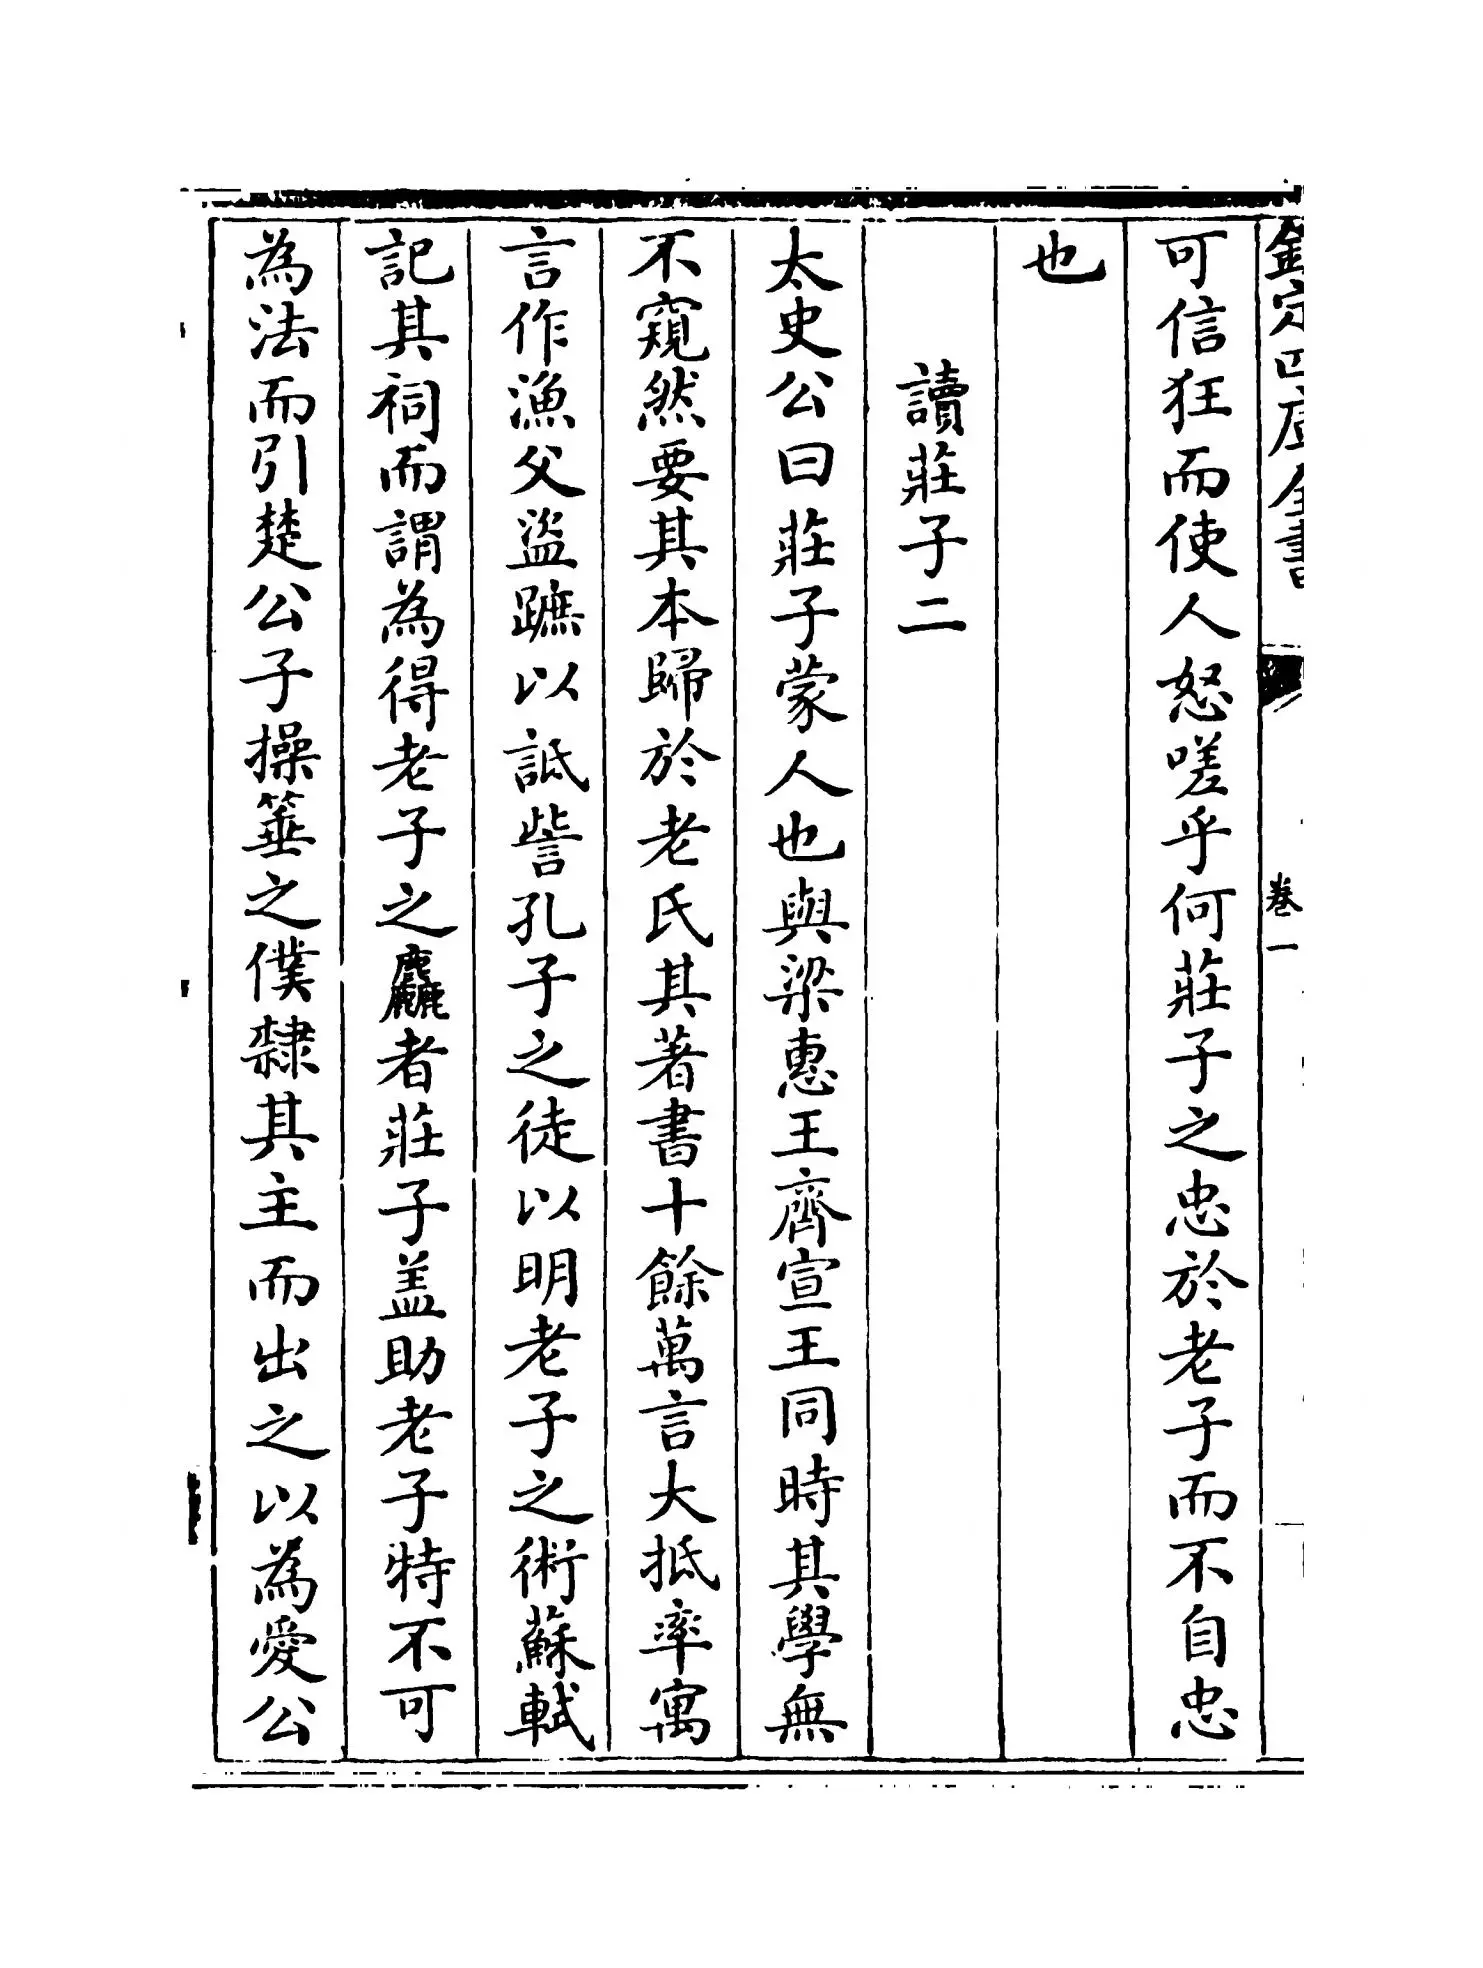 欽定四庫全書
卷一
可信狂而使人怒嗟乎何莊子之忠於老子而不自忠
也
讀莊子二
太史公曰莊子蒙人也與梁惠王齊宣王同時其學無
不窺然要其本歸於老氏其著書十餘萬言大抵率寓
言作漁父盜蹠以詆訾孔子之徒以明老子之術蘇軾
記其祠而謂為得老子之麤者莊子盖助老子特不可
為法而引楚公子操箠之僕隸其主而出之以為愛公